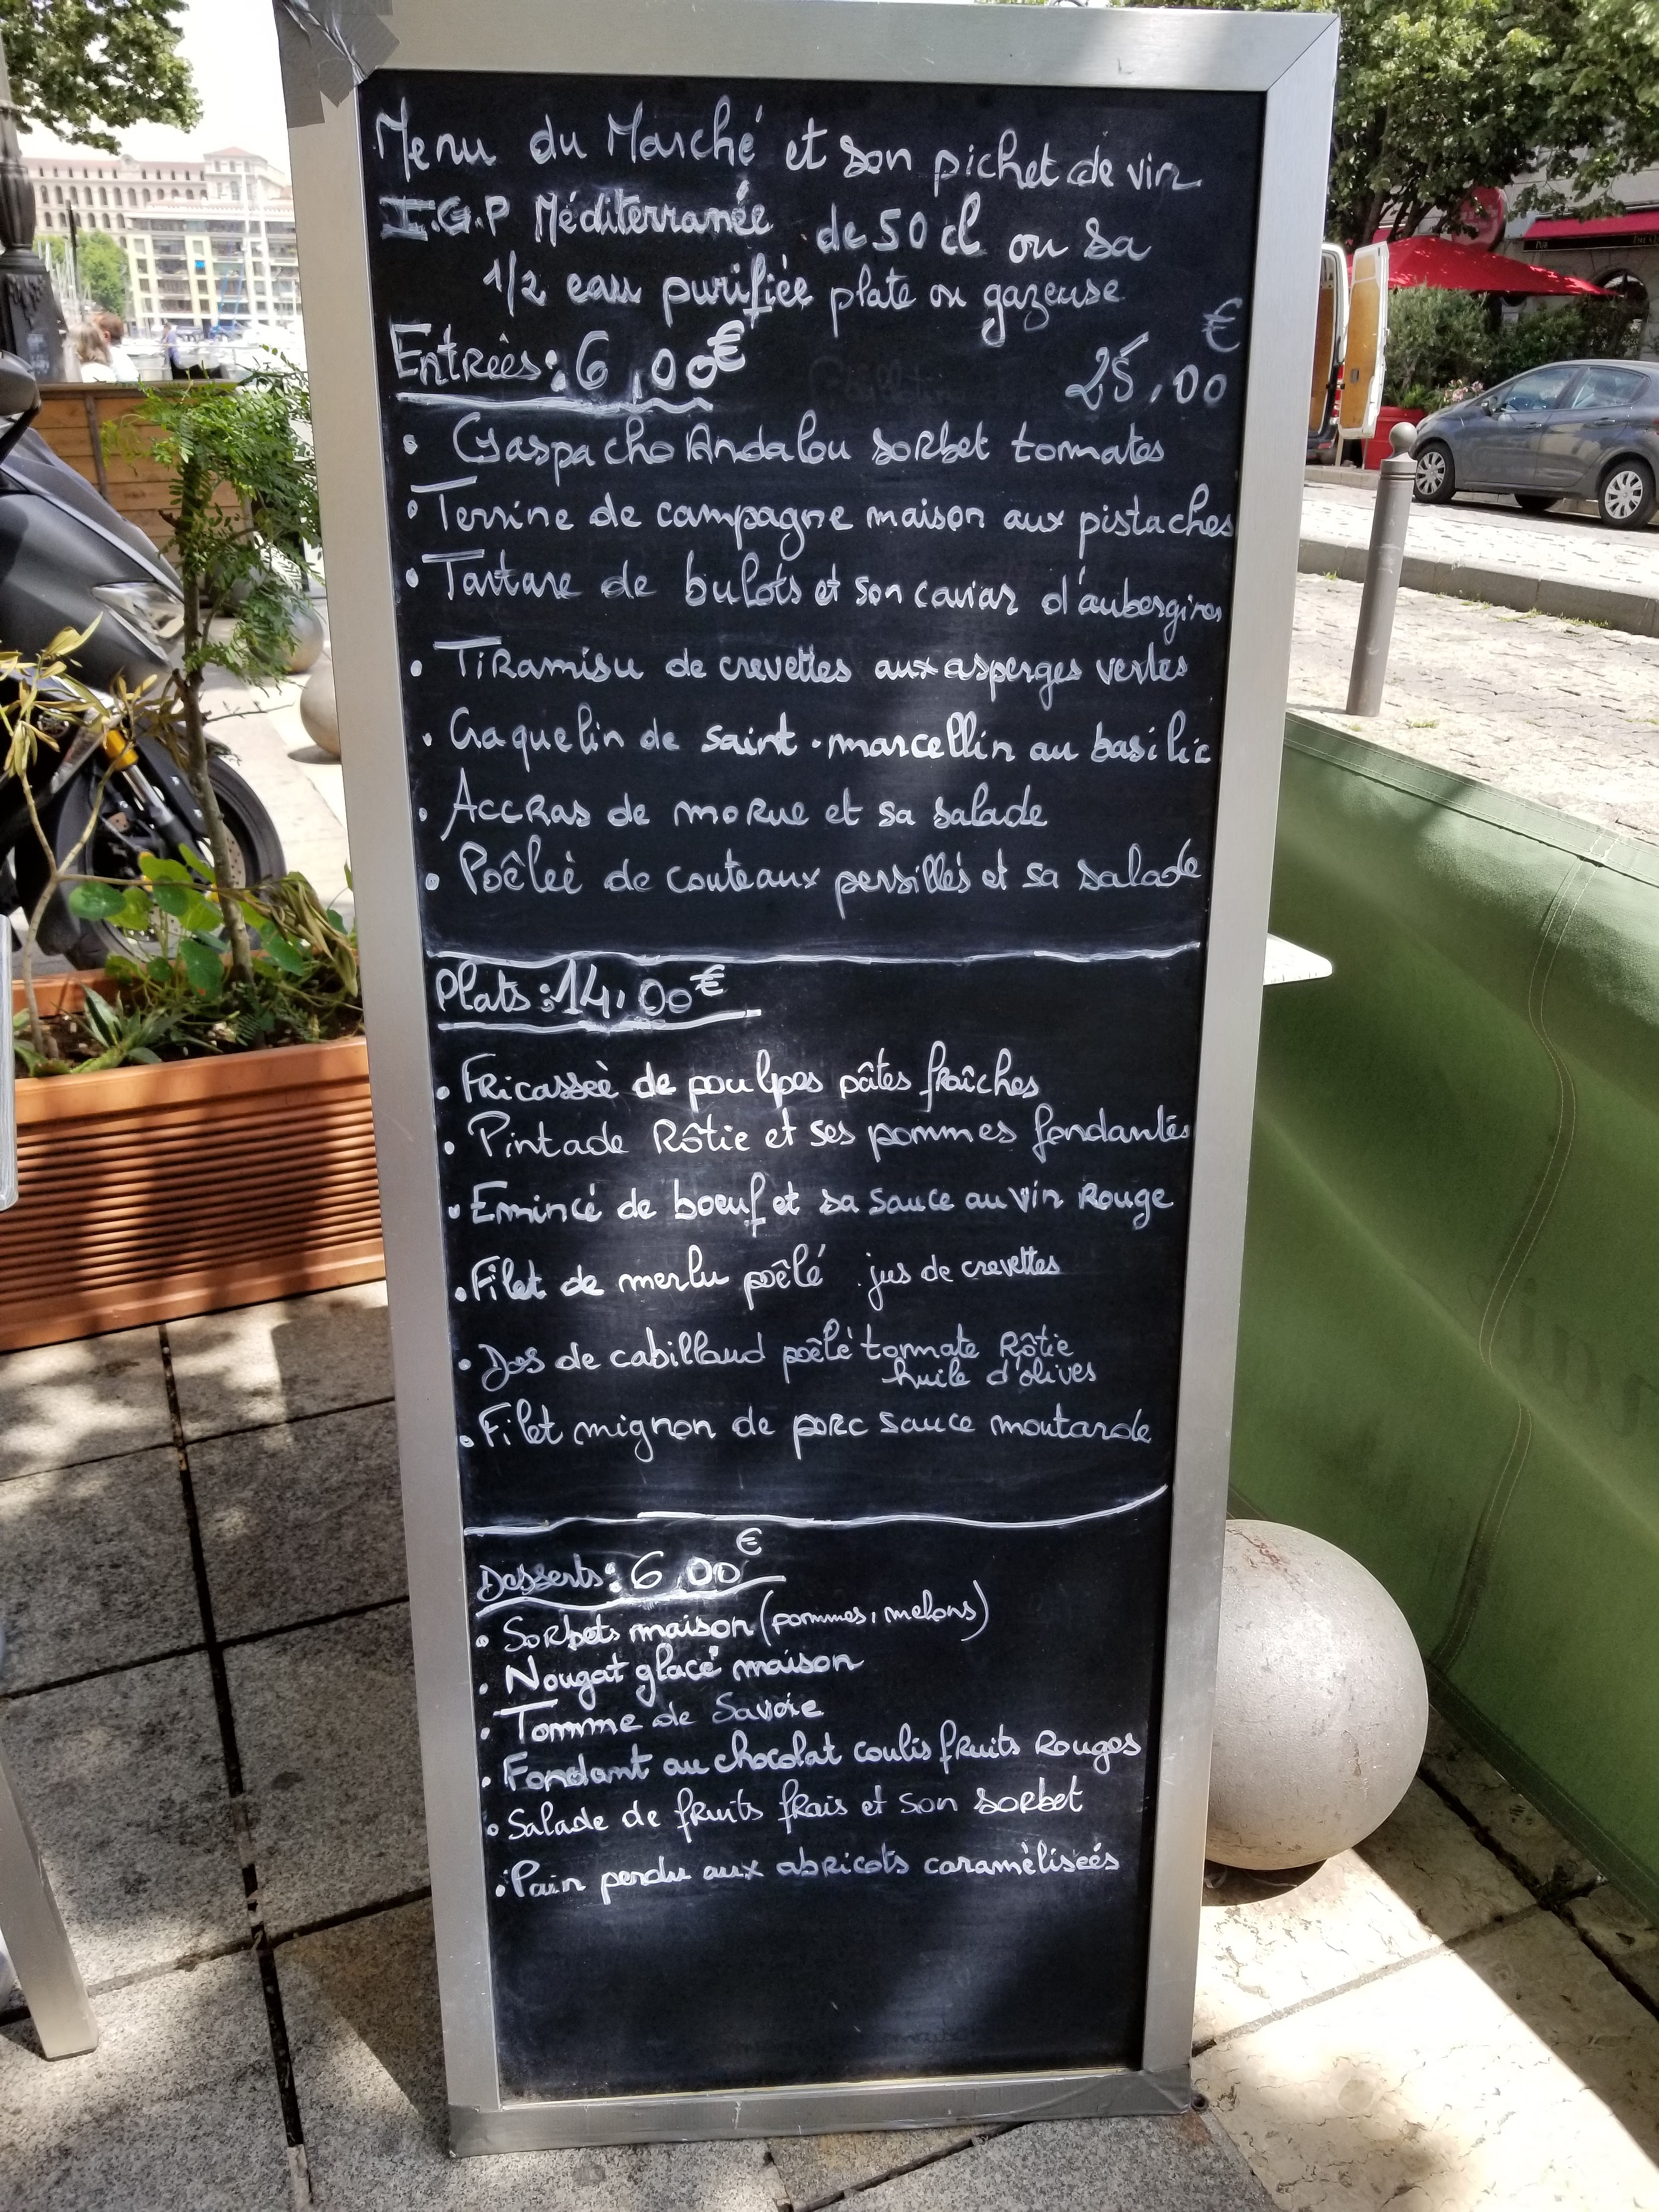 Menu du Marché et son pichet de vin
I.G.P Méditerranée de 50 cl ou sa
1/2 eau purifiée plate ou gazeuse
Entrées: 6,00€
25,00€
• Gaspacho Andalou sorbet tomates
• Terrine de campagne maison aux pistaches
• Tartare de bulots et son caviar d'aubergines
• Tiramisu de crevettes aux asperges vertes
• Caquelin de saint-marcellin au basilic
• Accras de morue et sa salade
• Poêlée de couteaux persillés et sa salade
Plats: 14,00€
• Fricassée de poulpes pâtes fraîches
• Pintade Rôtie et ses pommes fondantes
• Emincé de boeuf et sa sauce au vin Rouge
• Filet de merlu poêlé jus de crevettes
• Dos de cabillaud poêlé tomate Rôtie
huile d'olives
• Filet mignon de porc sauce moutarde
Desserts: 6,00€
• Sorbets maison (pommes, melons)
• Nougat glacé maison
• Tomme de Savoie
• Fondant au chocolat coulis fruits Rouges
• Salade de fruits frais et son sorbet
• Pain perdu aux abricots caramélisés